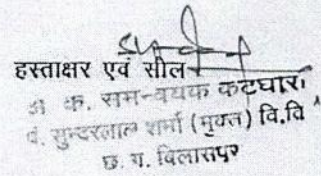 हस्ताक्षर एवं सील
अ क. समन्वयक कटघारा
पं. सुन्दरलाल शर्मा (मुक्त) वि.वि
छ. ग. बिलासपुर